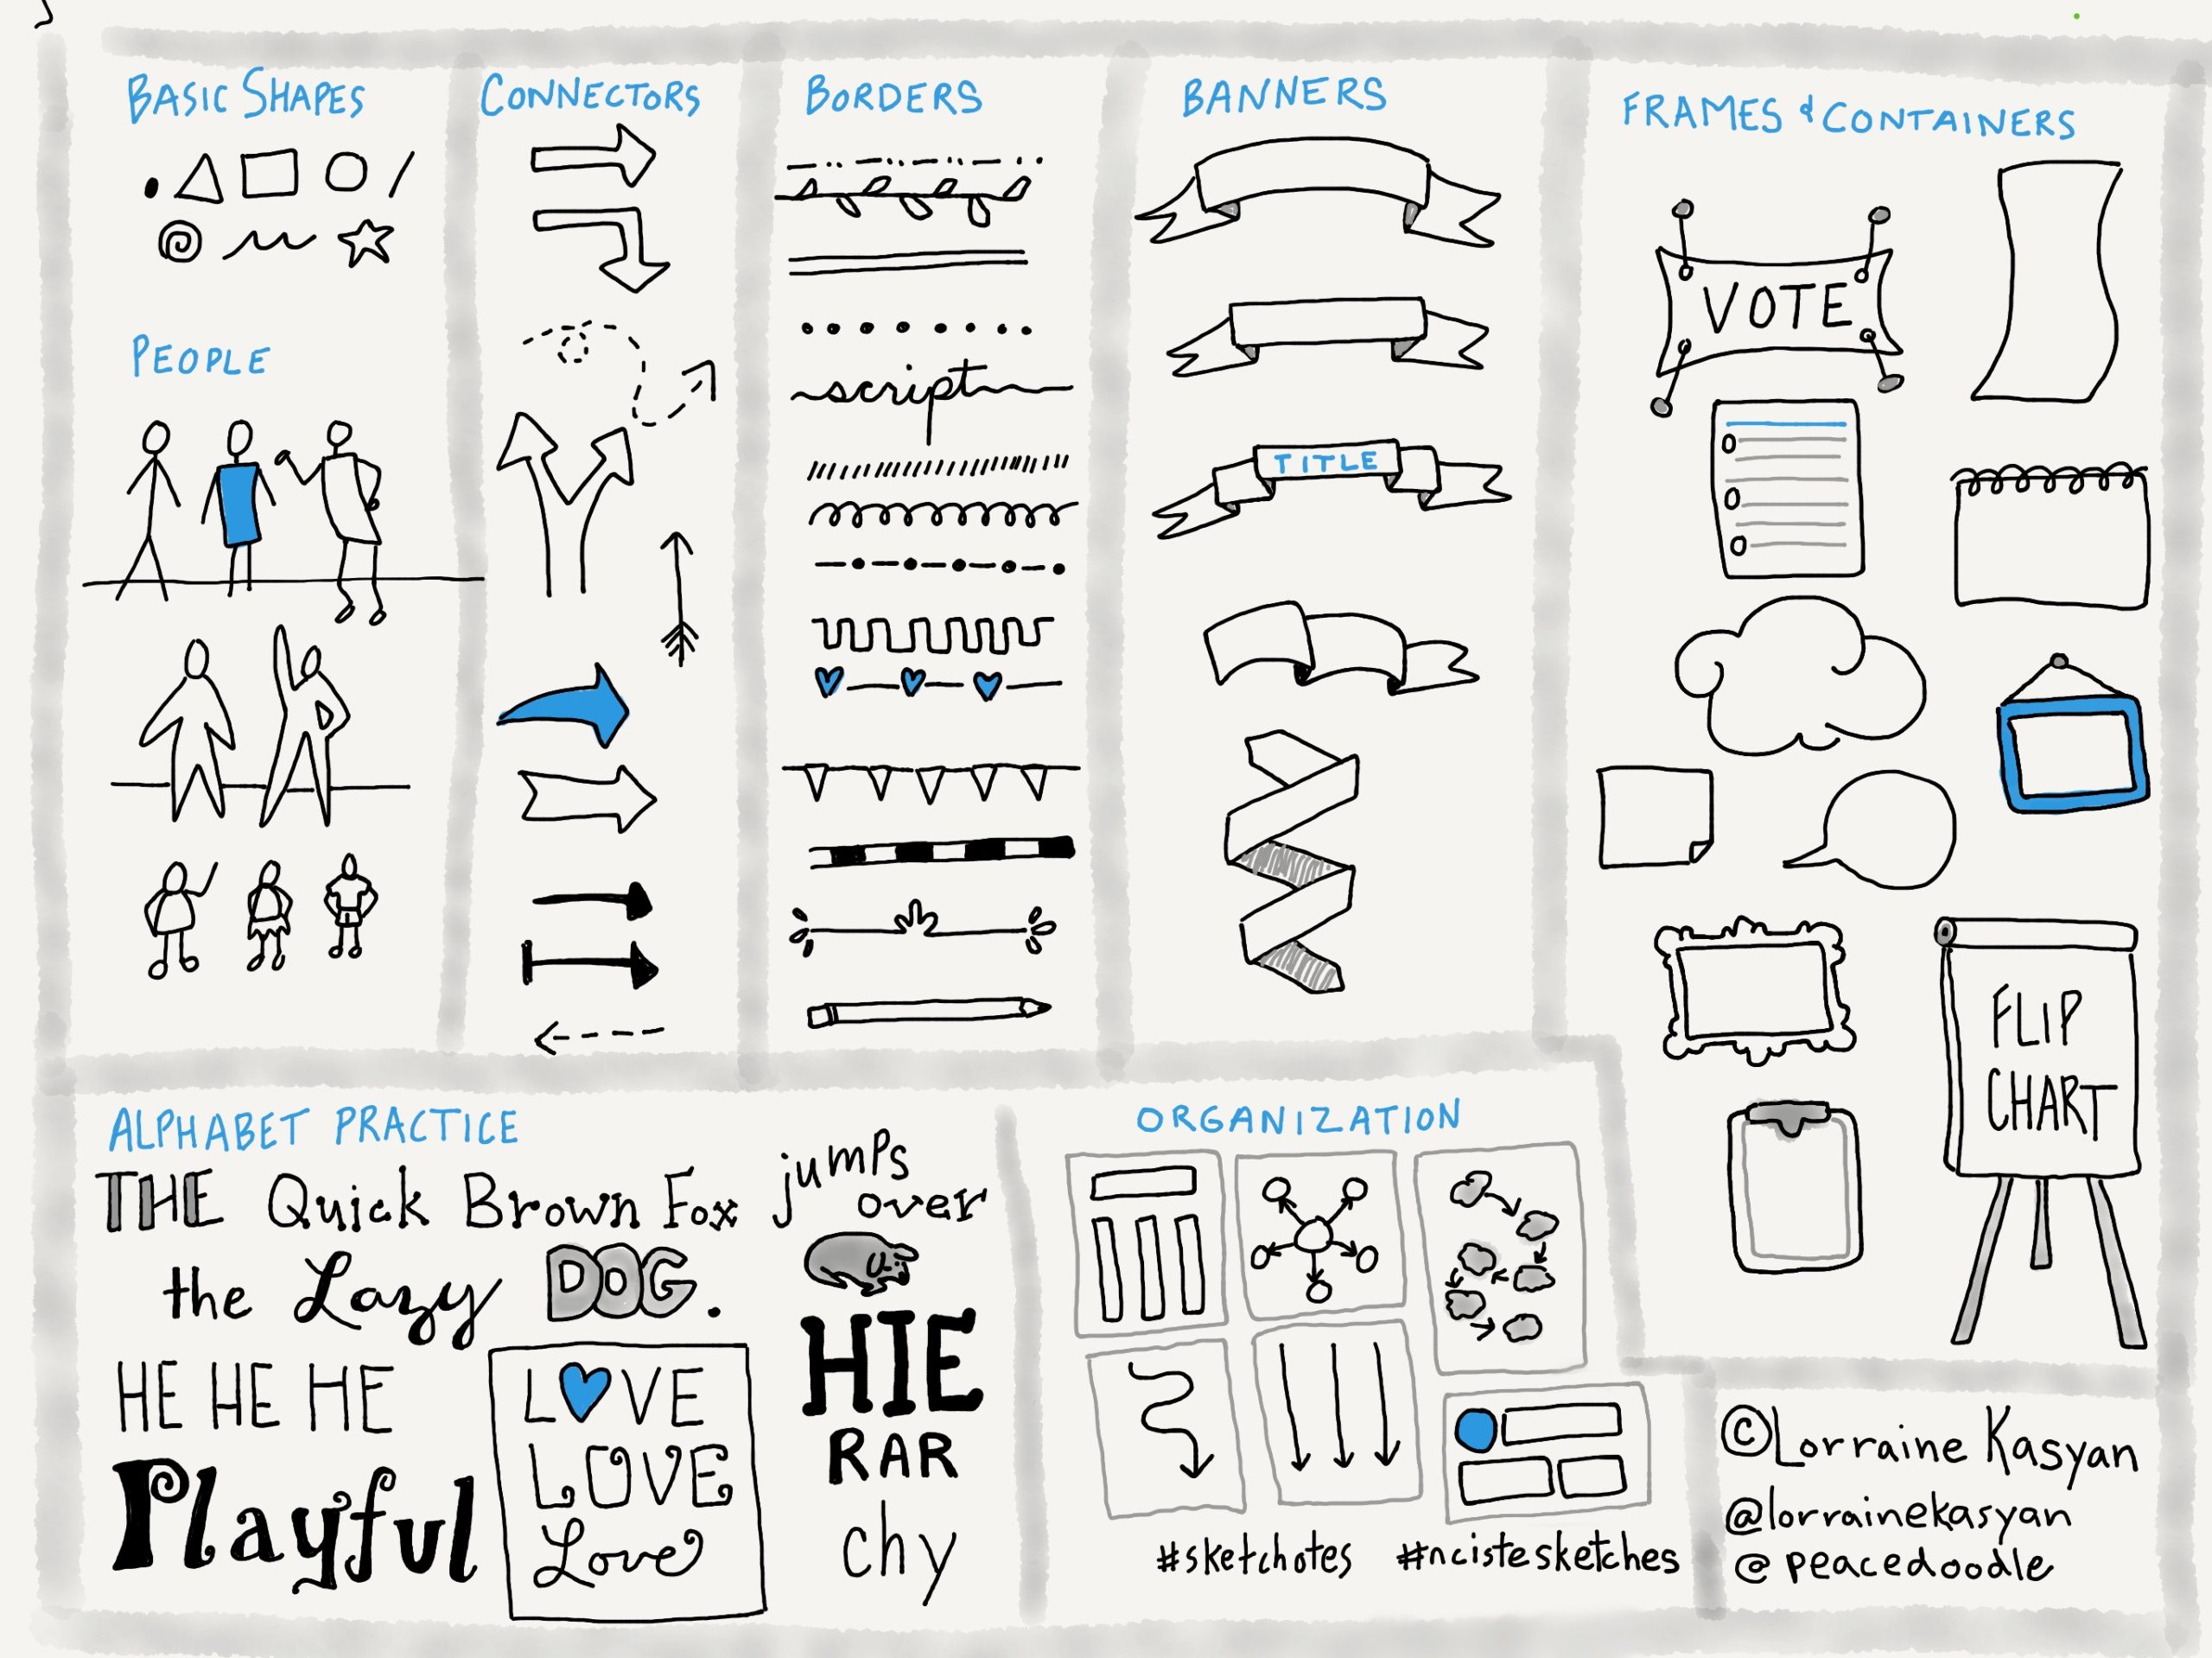 BASIC SHAPES
PEOPLE
CONNECTORS
BORDERS
script
BANNERS
TITLE
FRAMES & CONTAINERS
VOTE
FLIP
CHART
ALPHABET PRACTICE
THE Quick Brown Fox jumps
over
the Lazy DOG.
HE HE HE
Playful
LOVE
LOVE
Love
HIE
RAR
chy
ORGANIZATION
#sketchotes #ncistesketches
©Lorraine Kasyan
@lorrainekasyan
@peacedoodle